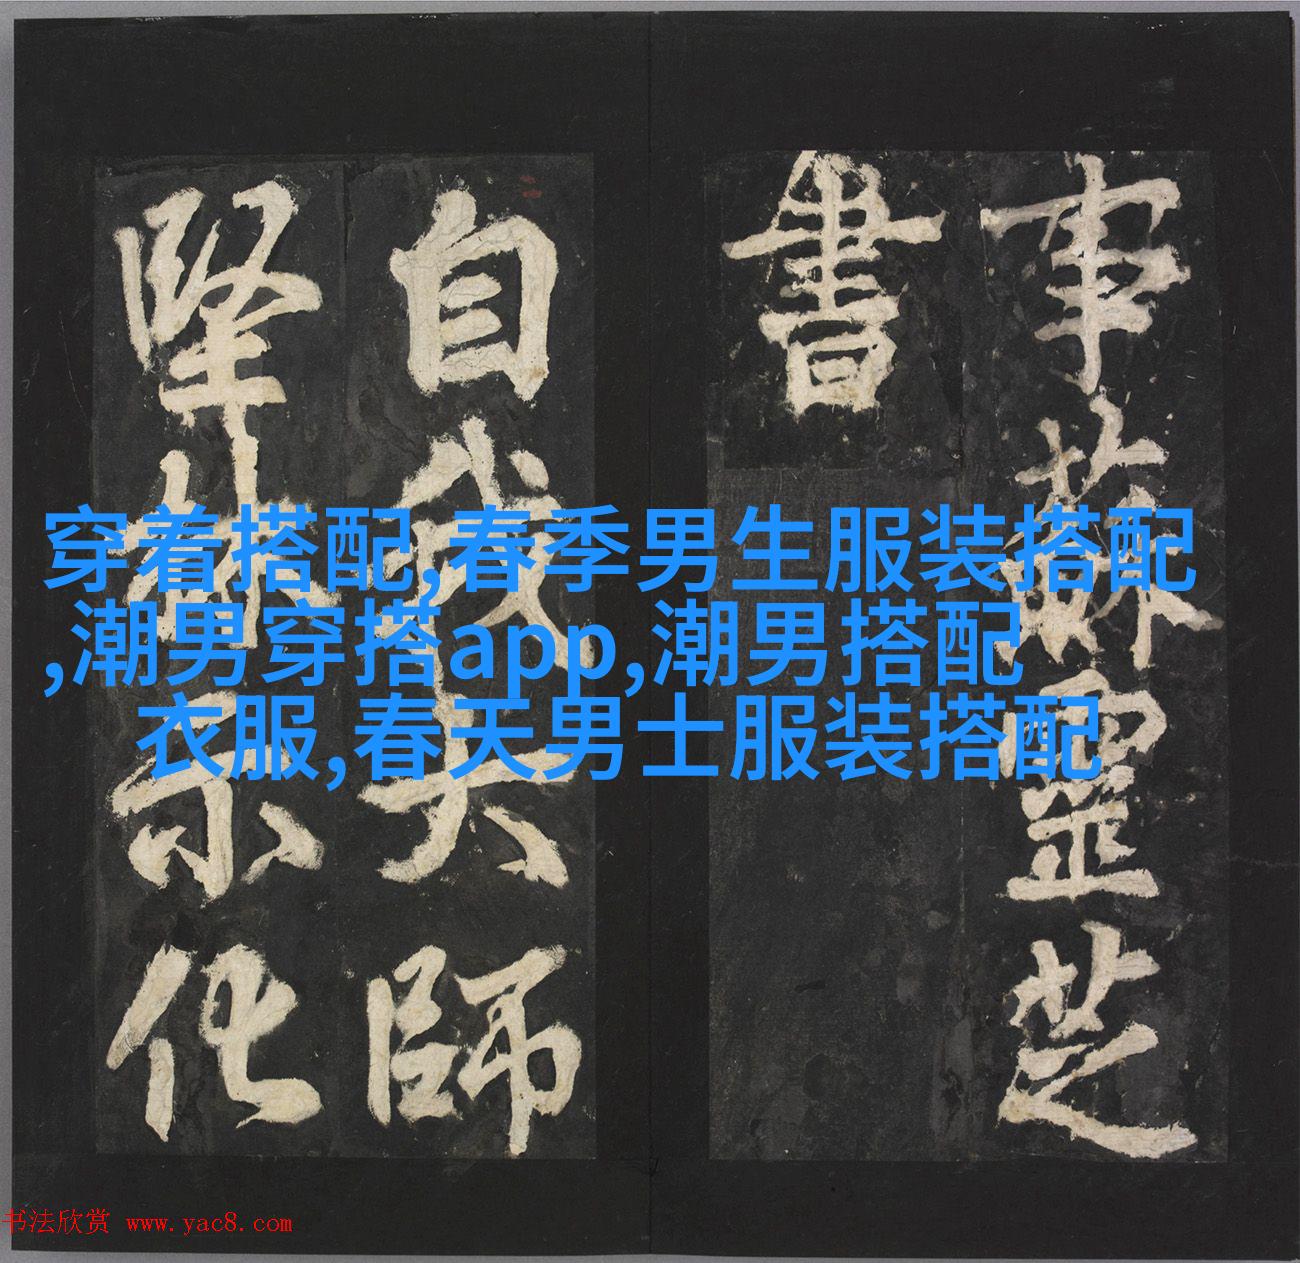 事蘇靈芝
書
自我大師
堅林示化
穿着搭配,春季男生服装搭配
,潮男穿搭app,潮男搭配
衣服,春天男士服装搭配
书法欣赏 www.yac8.com